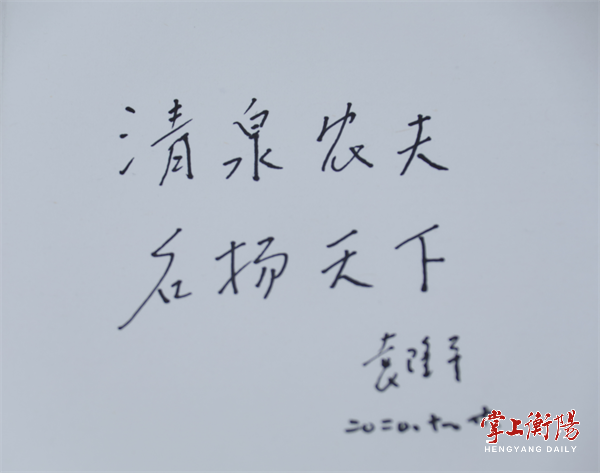 清泉农夫
名扬天下
袁隆平
二〇二〇.十
掌上衡陽
HENGYANG DAILY